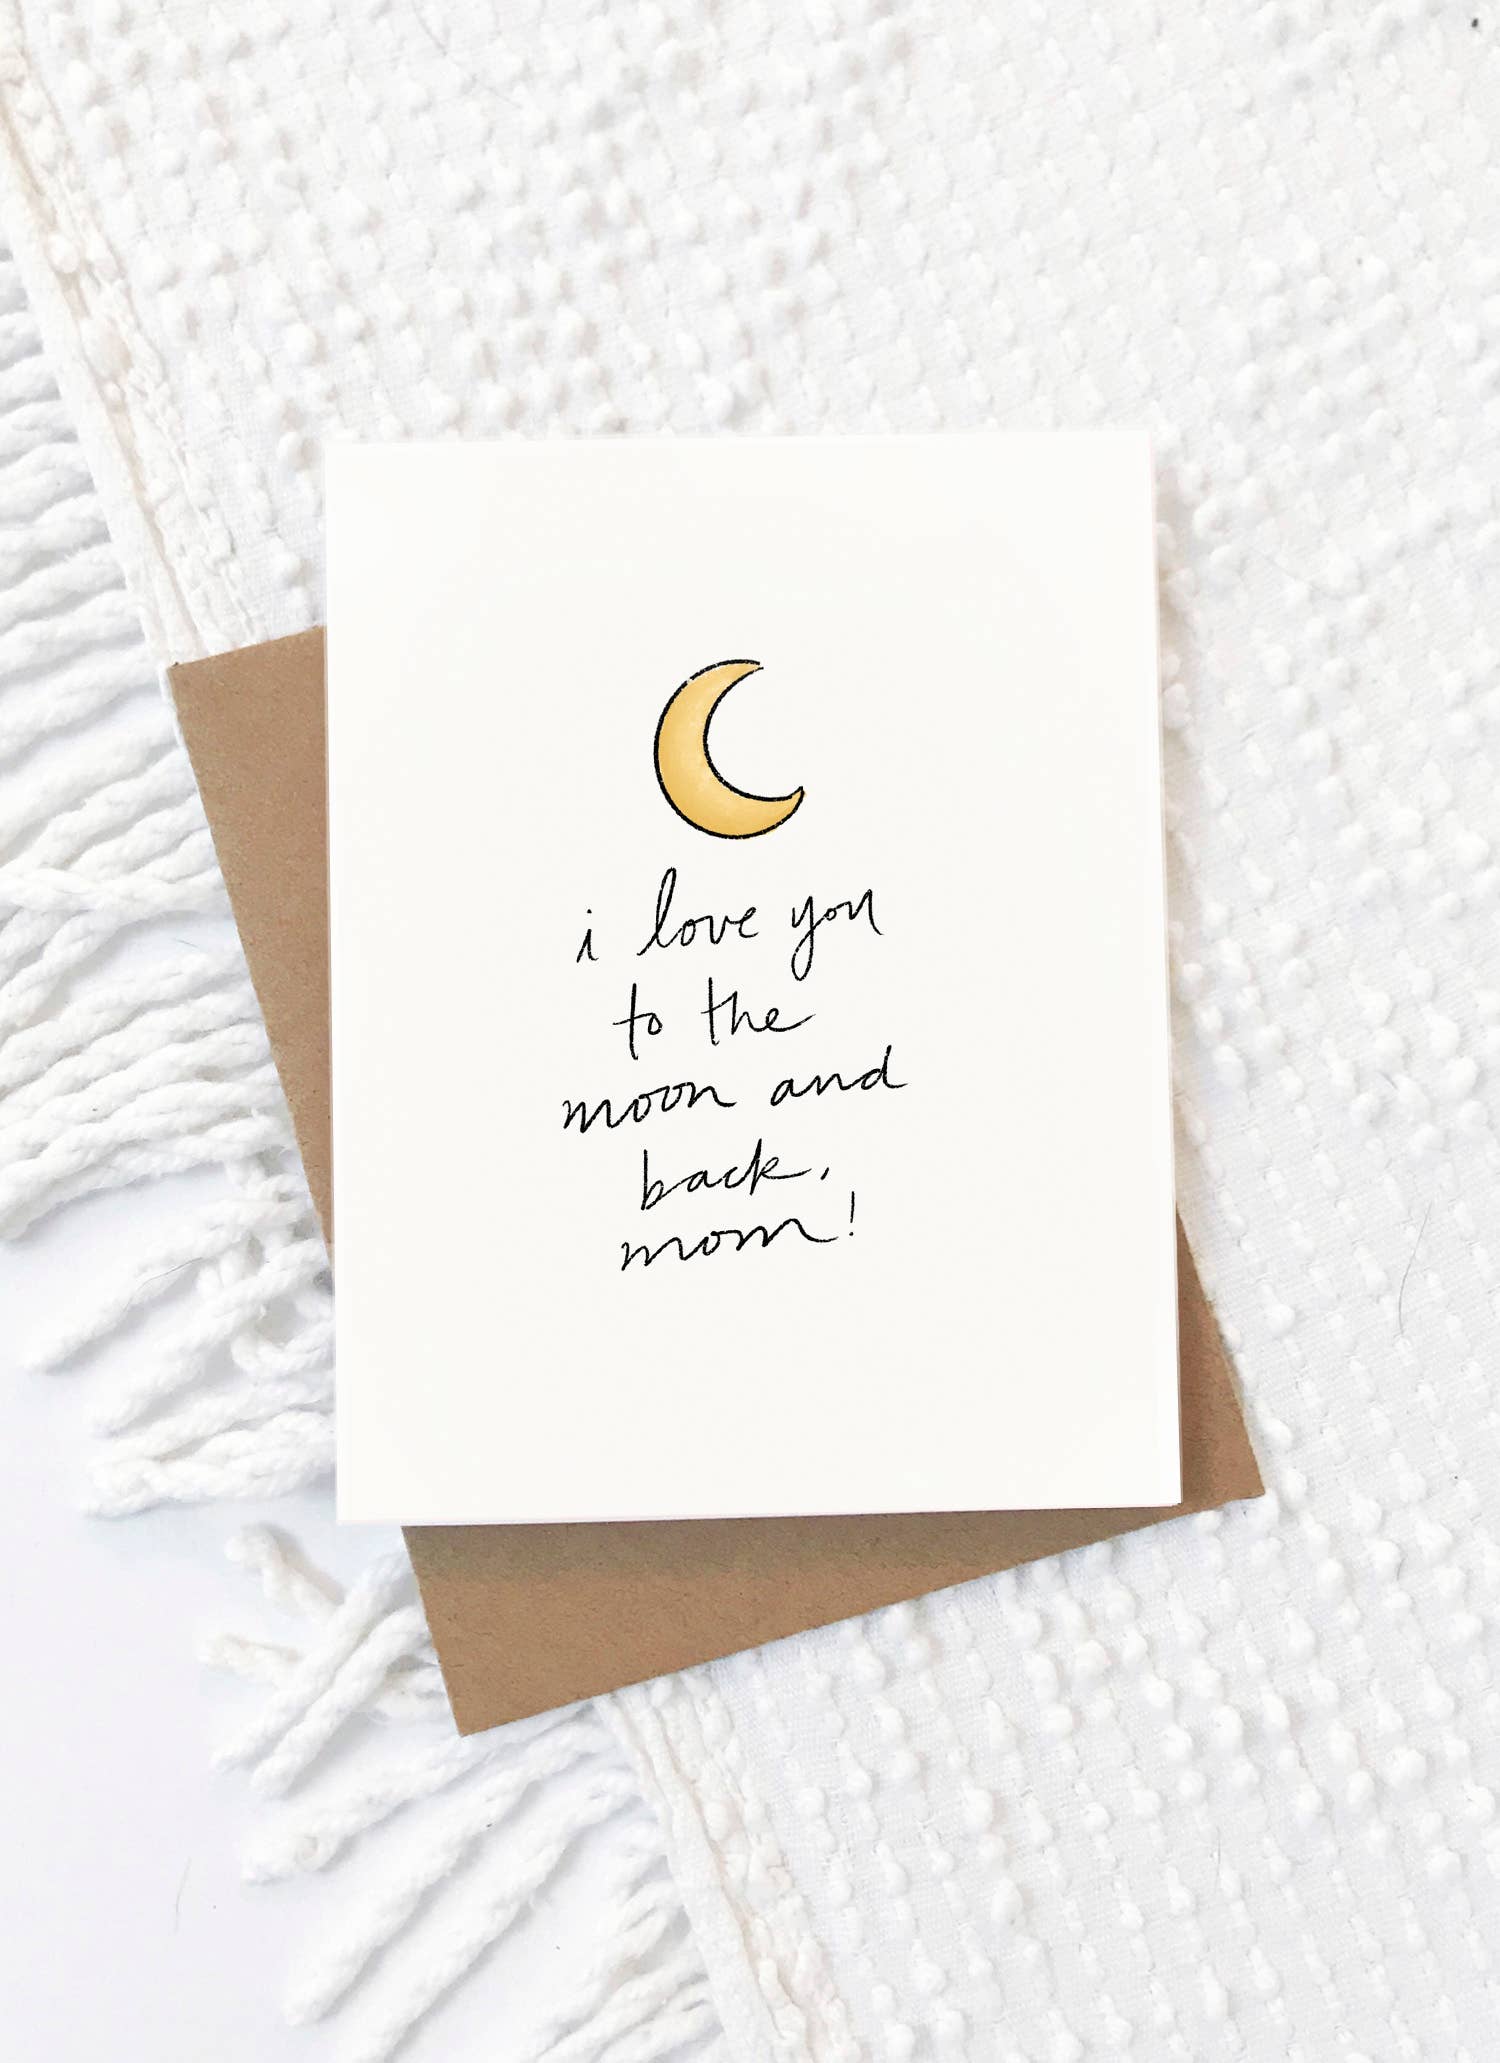 i love you
to the
moon and
back,
mom!